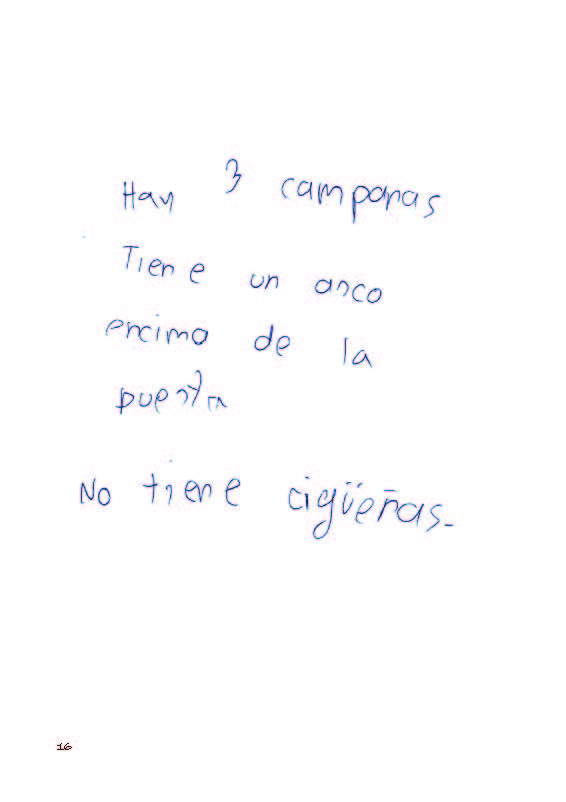 Hay 3 campanas
Tiene un arco
encima de la
puerta
No tiene cigüeñas.
16